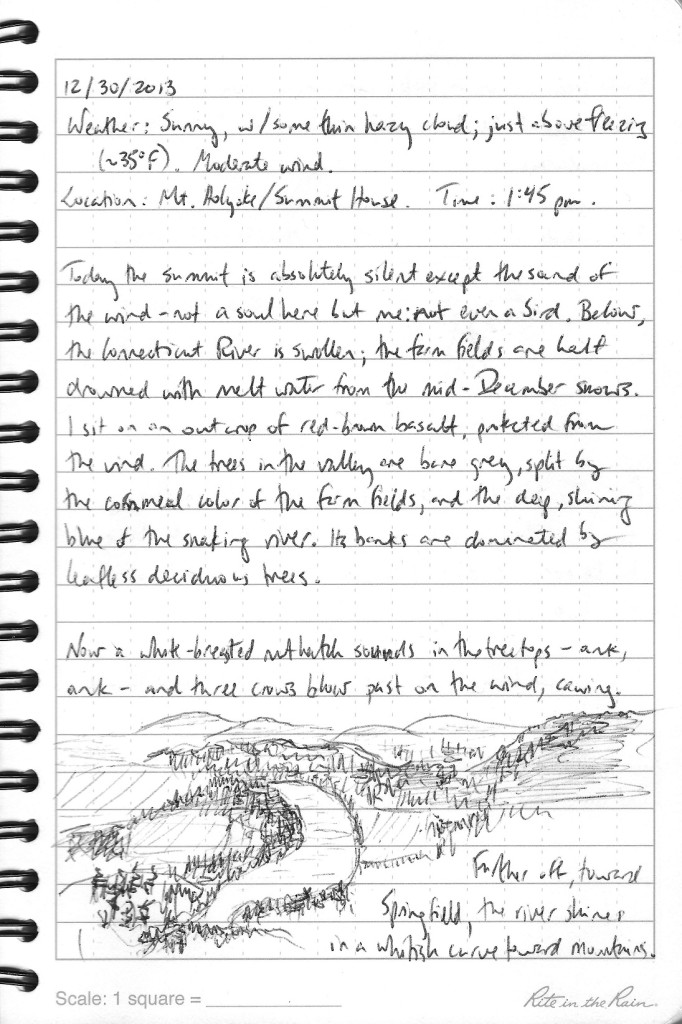 12/30/2013
Weather: Sunny, w/some thin hazy cloud; just above freezing
(~35°F). Moderate wind.
Location: Mt. Holyoke/Summit House. Time: 1:45 pm.
Today the summit is absolutely silent except the sound of
the wind - not a soul here but me: not even a bird. Below,
the Connecticut River is swollen; the farm fields are half
drowned with melt water from the mid-December snows.
I sit on an outcrop of red-brown basalt, protected from
the wind. The trees in the valley are bare grey, split by
the cornmeal color of the farm fields, and the deep, shining
blue of the snaking river. Its banks are dominated by
leafless deciduous trees.
Now a white-breasted nuthatch sounds in the treetops - ank,
ank - and three crows blow past on the wind, cawing.
Further off, toward
Springfield, the river shines
in a whitish curve toward mountains.
Scale: 1 square =
Rite in the Rain